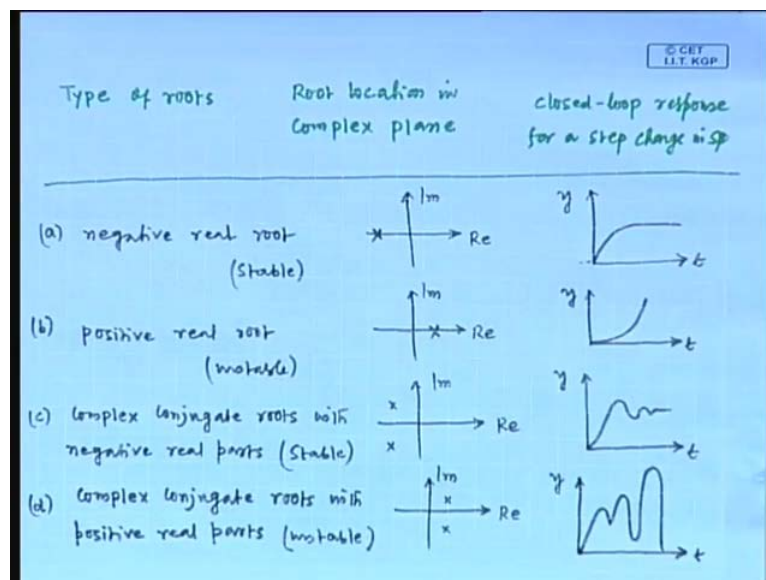 © CET
I.I.T. KGP
Type of roots
Root location in
complex plane
closed-loop response
for a step change in SP
(a) negative real root
(Stable)
Im
Re
y
t
(b) positive real root
(unstable)
Im
Re
y
t
(c) complex conjugate roots with
negative real parts (Stable)
Im
Re
y
t
(d) complex conjugate roots with
positive real parts (unstable)
Im
Re
y
t